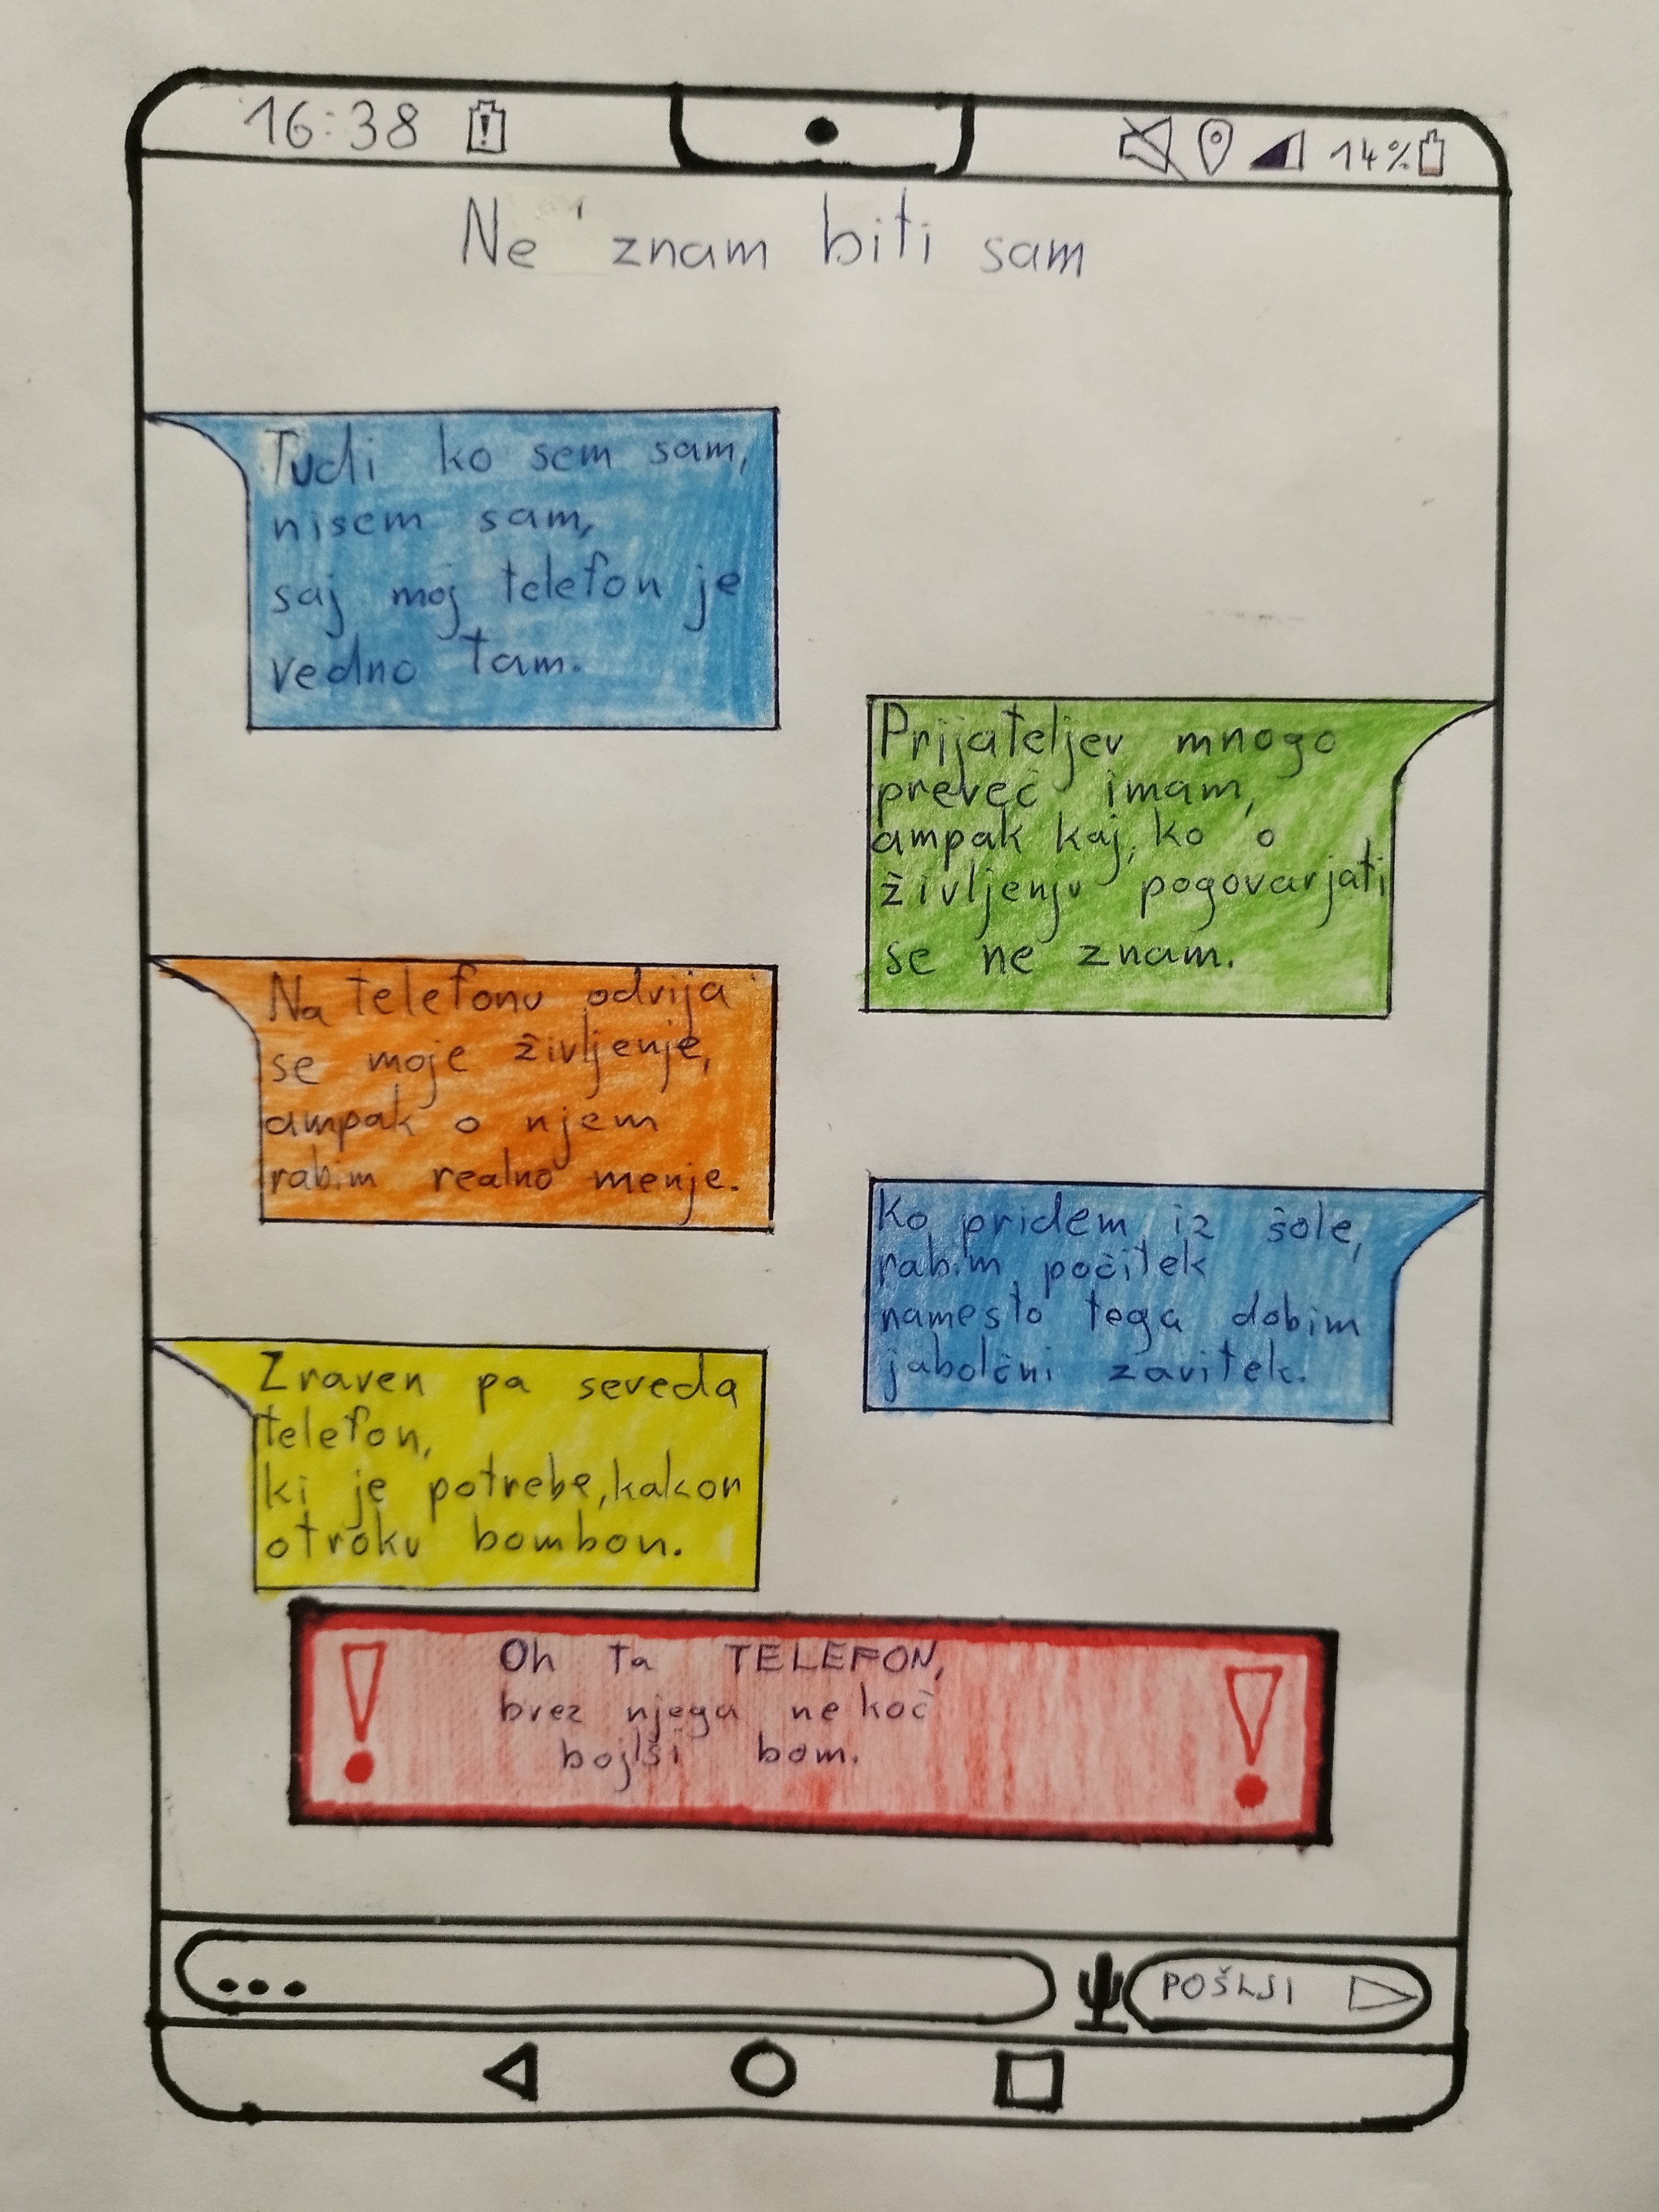 16:38
14%
Ne znam biti sam
Tudi ko sem sam,
nisem sam,
saj moj telefon je
vedno tam.
Prijateljev mnogo
preveč imam,
ampak kaj, ko o
življenju pogovarjati
se ne znam.
Na telefonu odvija
se moje življenje,
ampak o njem
rabim realno menje.
Ko pridem iz šole,
rabim počitek
namesto tega dobim
jabolčni zavitek.
Zraven pa seveda
telefon,
ki je potrebe, kakor
otroku bombon.
Oh ta TELEFON,
brez njega nekoč
bojlši bom.
POŠLJI